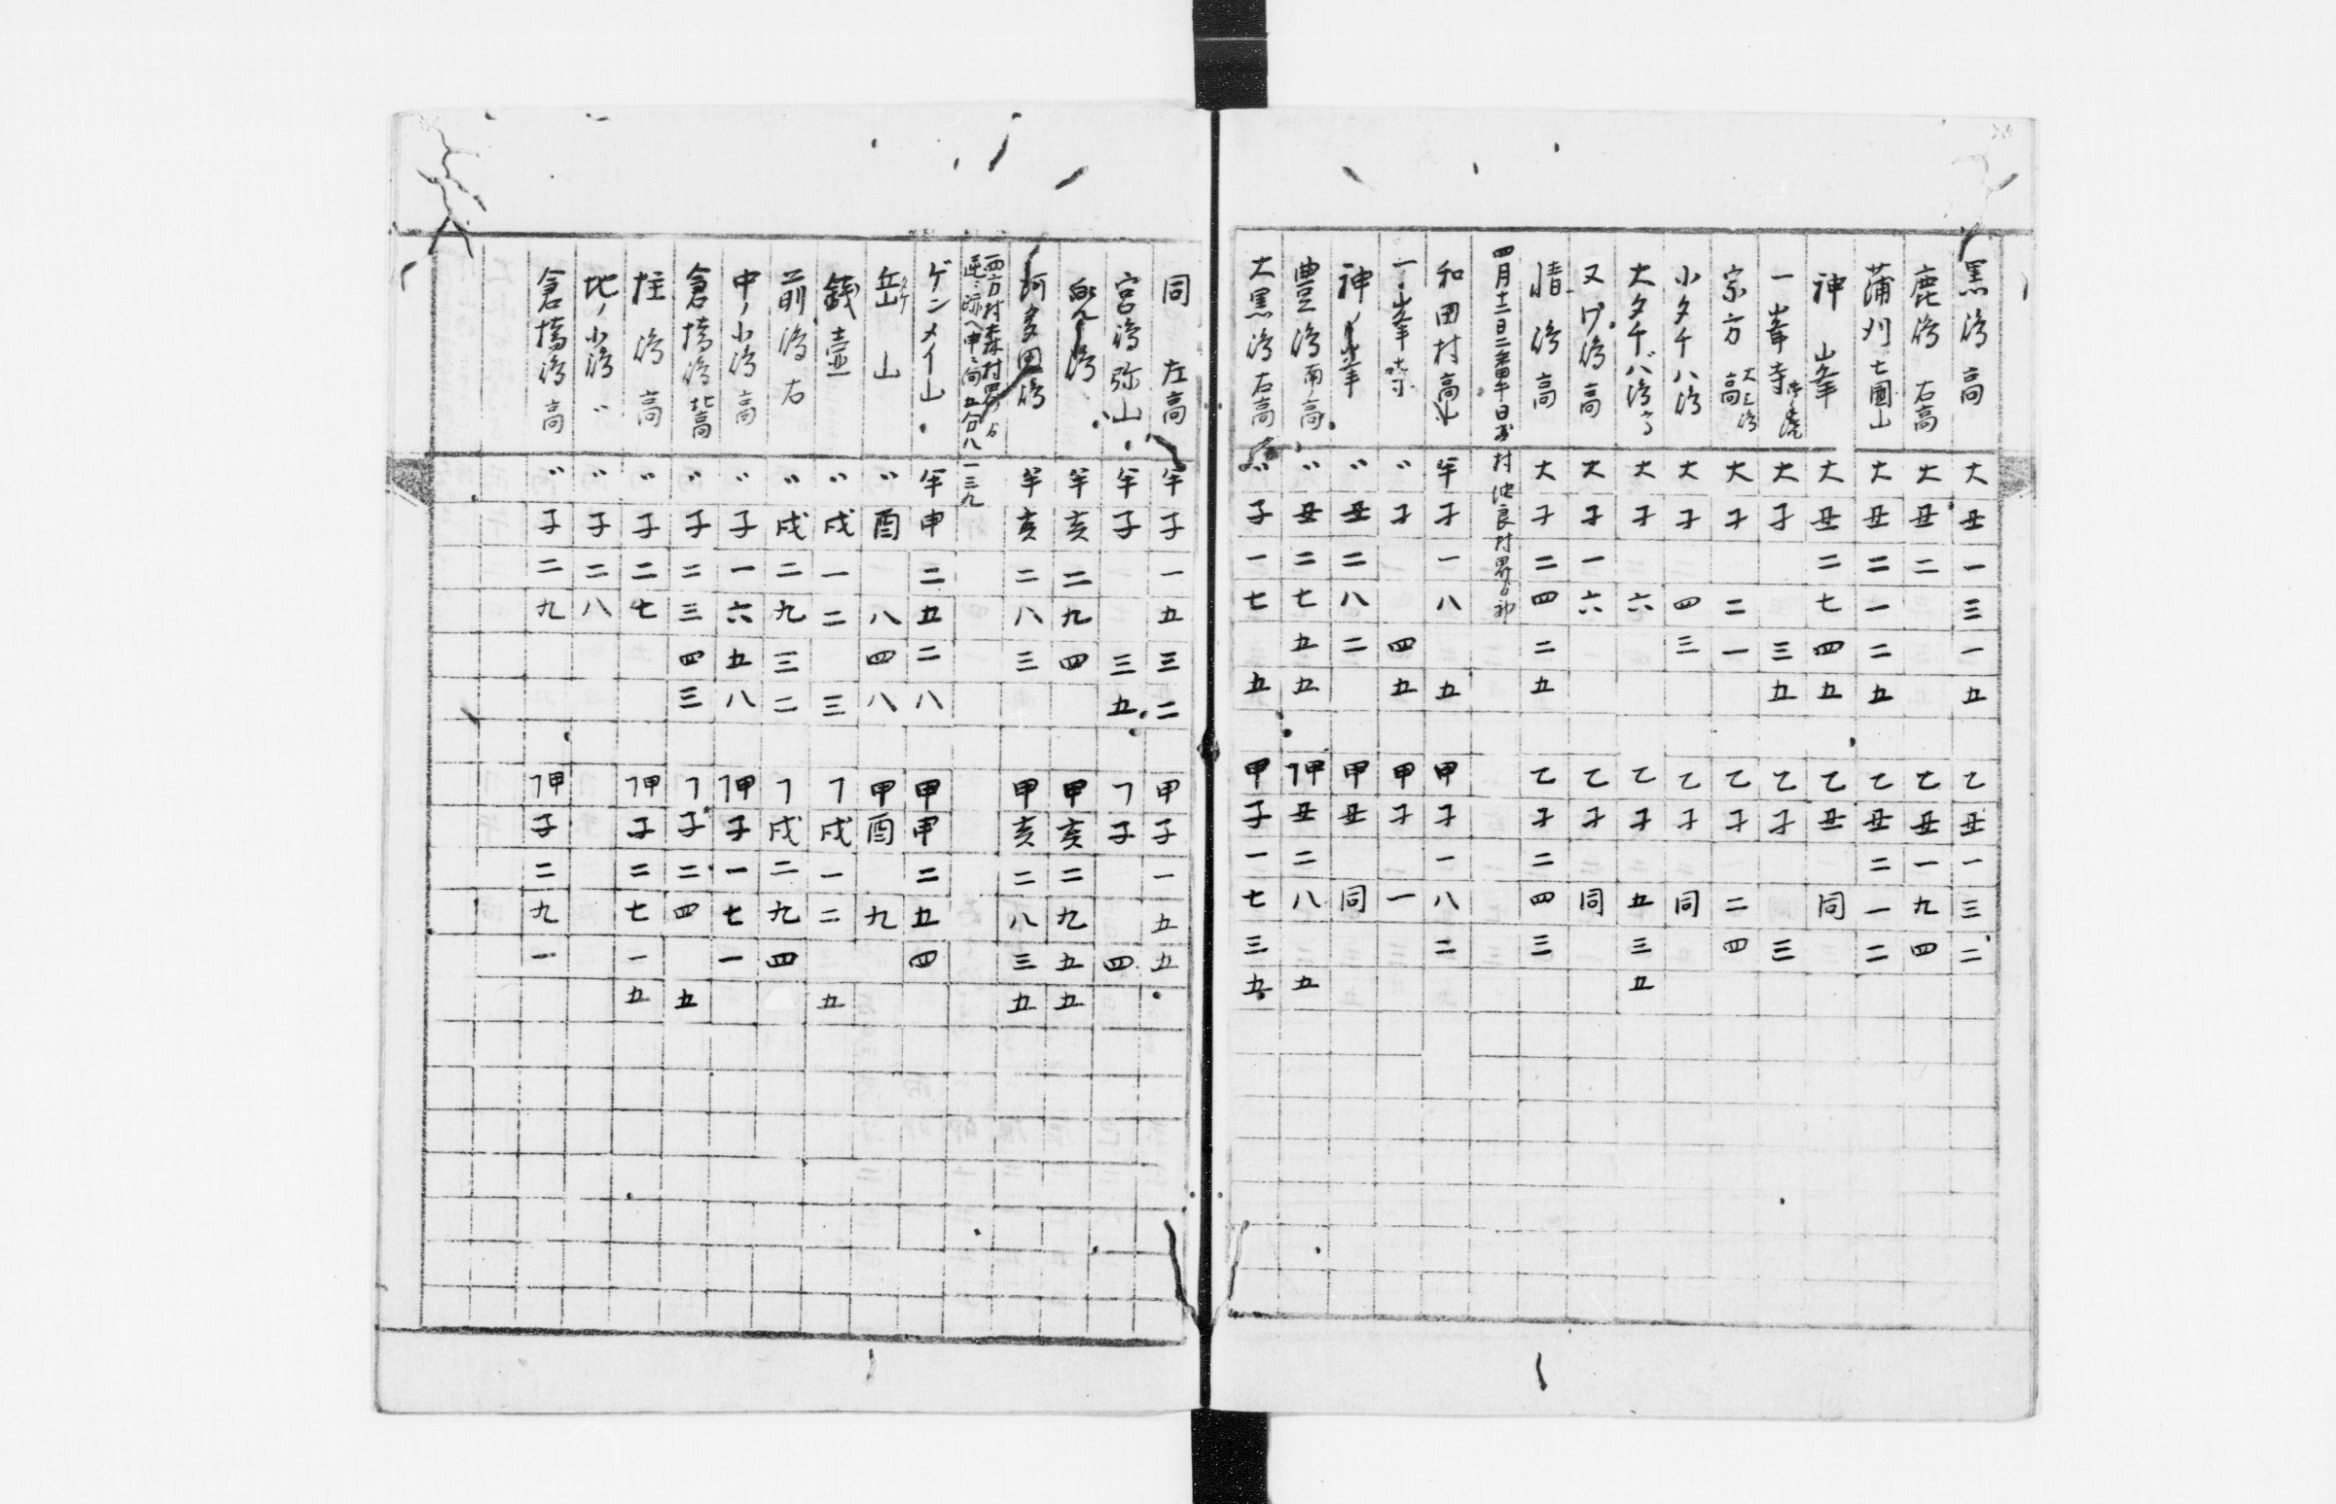 黒島高 大丑一三一五 乙丑一三二
鹿島右高 大丑二 乙丑一九四
蒲刈七國山 大丑二一二五 乙丑二一二
神山峯 大丑二七四五 乙丑同
一峯寺 大子三五 乙子三
宗方高 大三島 大子二一 乙子二四
小タチハ島 大子四三 乙子同
大タチバ島 大子六 乙子五三五
又ケ島高 大子一六 乙子同
情島高 大子二四二五 乙子二四三
四月十二日 村 波良村界
和田村高山 半子一八五 甲子一八二
一ノ峯 〃子四五 甲子一
神ノ峯 〃丑二八二 甲丑同
豊島南高 〃丑二七五五 フ甲丑二八五
大黒島右高 〃子一七五 甲子一七三五
同左高 半子一五三二 甲子一五五
宮島弥山 半子三五 フ子四
半亥二九四 甲亥二九五五
阿多田島 半亥二八三 甲亥二八三五
西方村森村界 申向五分八 一三九
ゲンメイ山 半申二五二八 甲申二五四
岳山 タケ 〃酉八四八 甲酉九
銭壷 〃戌一二三 フ戌一二五
前島右 〃戌二九三二 フ戌二九四
中ノ小島高 〃子一六五八 フ甲子一七一
倉橋島北高 〃子二三四三 フ子二四五
柱島高 〃子二七 フ甲子二七一五
地ノ小島〃 〃子二八
倉橋島高 〃子二九 フ甲子二九一